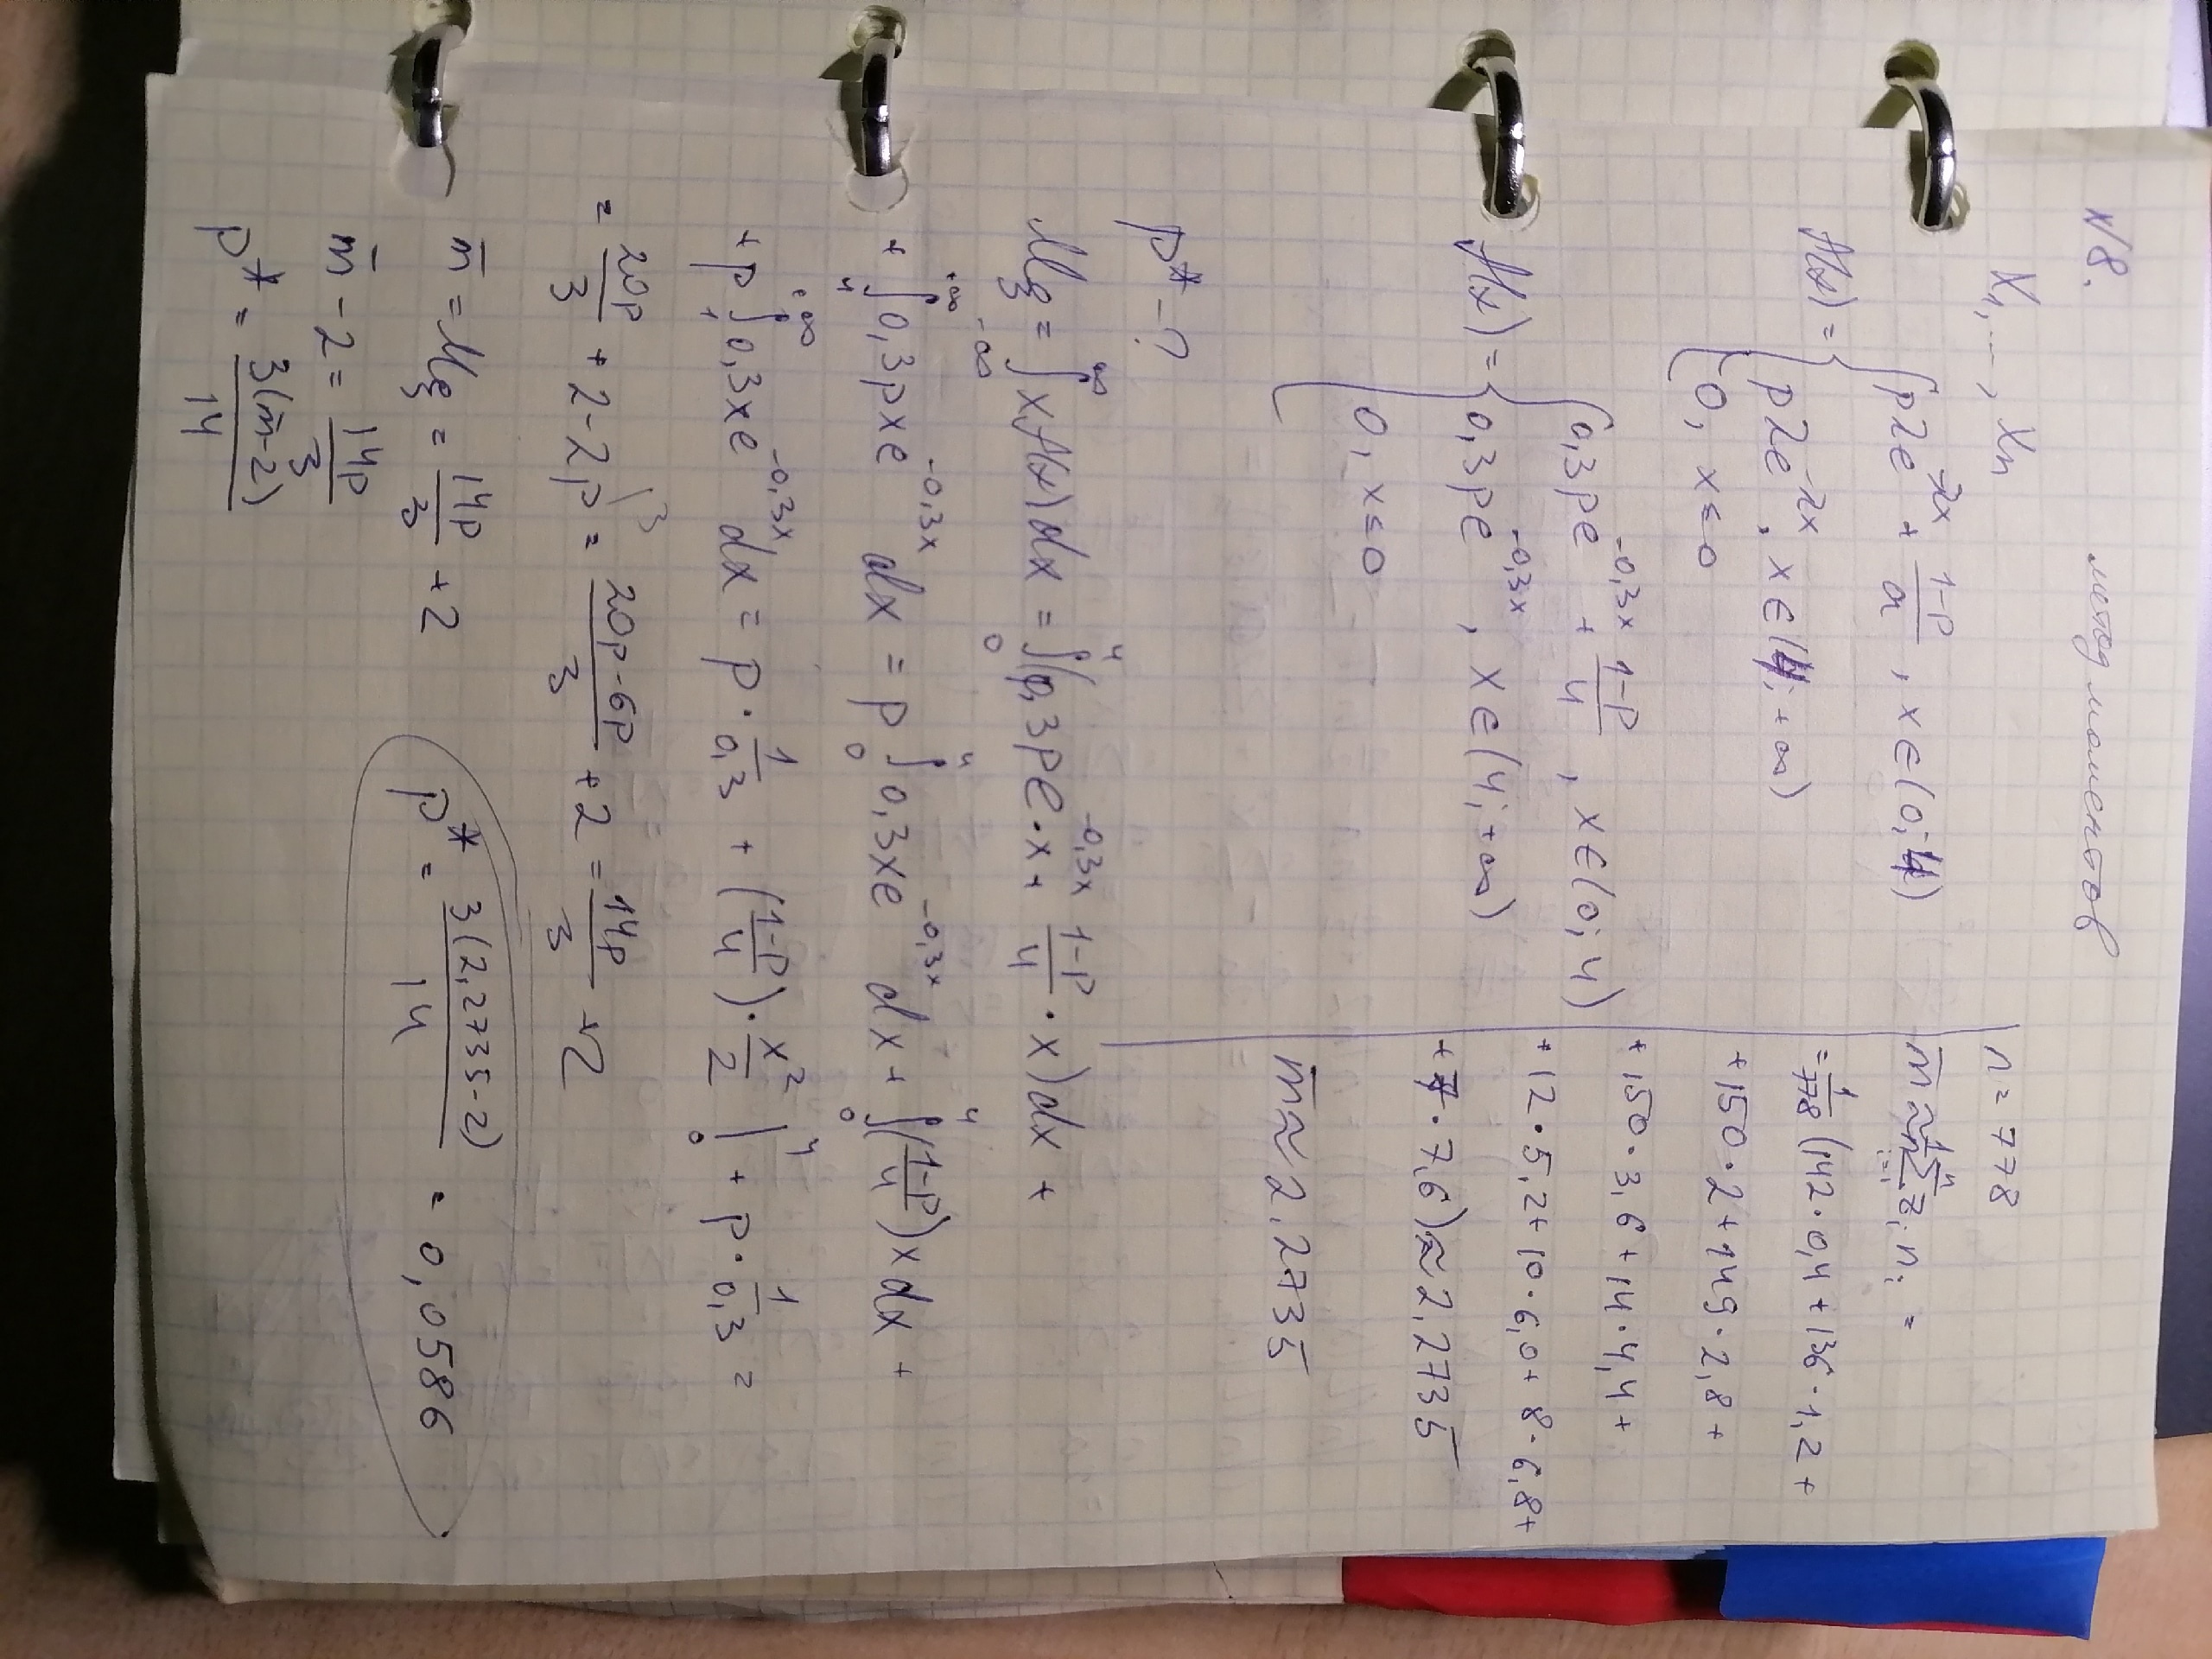 N8.
метод моментов
X₁, ..., Xₙ
f(x) = { pλe^(-λx) + (1-p)/a, x ∈ (0; 4)
pλe^(-λx), x ∈ (4; +∞)
0, x ≤ 0
f(x) = { 0,3pe^(-0,3x) + (1-p)/4, x ∈ (0; 4)
0,3pe^(-0,3x), x ∈ (4; +∞)
0, x ≤ 0
p* - ?
n = 778
m̄ ≈ 1/n Σ_(i=1)^n zᵢnᵢ =
= 1/778 (142·0,4 + 136·1,2 +
+ 150·2 + 149·2,8 +
+ 150·3,6 + 14·4,4 +
+ 12·5,2 + 10·6,0 + 8·6,8 +
+ 7·7,6) ≈ 2,2735
m̄ ≈ 2,2735
Mξ = ∫_(-∞)^∞ x f(x) dx = ∫_0^4 (0,3pe^(-0,3x)·x + (1-p)/4·x) dx +
+ ∫_4^(+∞) 0,3pxe^(-0,3x) dx = p ∫_0^4 0,3xe^(-0,3x) dx + ∫_0^4 ((1-p)/4) x dx +
+ p ∫^(+∞) 0,3xe^(-0,3x) dx = p · 1/0,3 + ((1-p)/4) · x²/2 |_0^4 + p · 1/0,3 =
= 20p/3 + 2 - 2p^(\3) = (20p-6p)/3 + 2 = 14p/3 + 2
m̄ = Mξ = 14p/3 + 2
m̄ - 2 = 14p/3
p* = 3(m̄-2)/14
p* = 3(2,2735-2)/14 = 0,0586